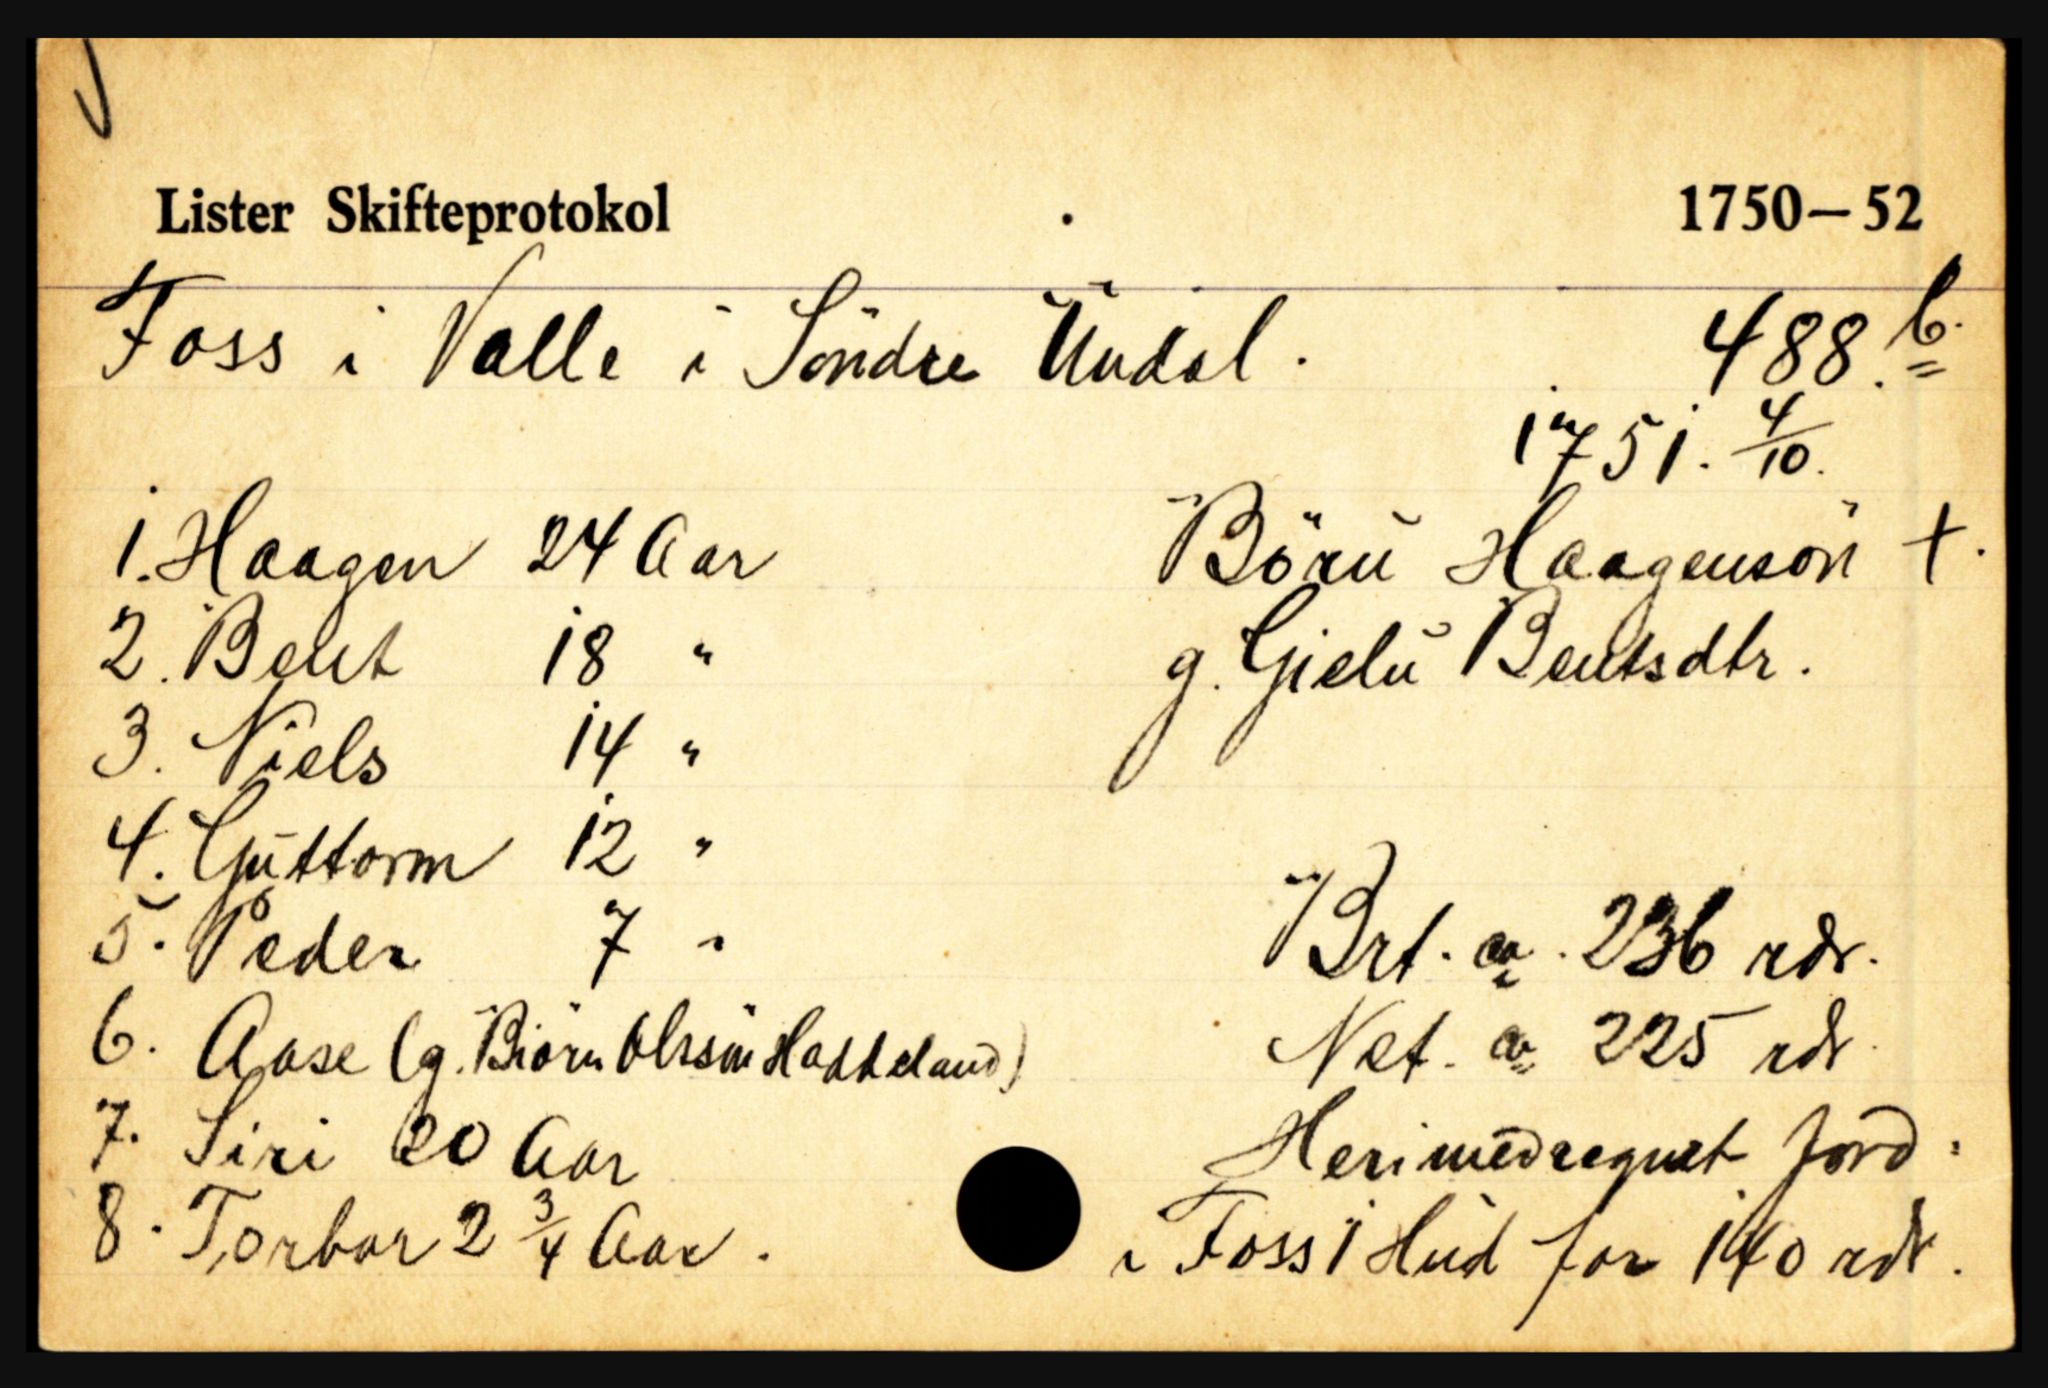 Lister Skifteprotokol 1750–52
Foss i Valle i Söndre Undal. 488.b.
1751. 4/10.
1. Haagen 24 Aar
Börn Haagensön +.
2. Bent 18 "
g. Gielu Bentsdtr.
3. Niels 14 "
4. Guttorm 12 "
5. Peder 7 "
Brt. ca. 236 rdr.
6. Aase (g. Biörn Olssön Hatteland)
Net. ca 225 rdr
7. Siri 20 Aar
Heri medregnet Jord.
8. Torbor 2 3/4 Aar.
i Foss 1 Hud for 140 rdr.